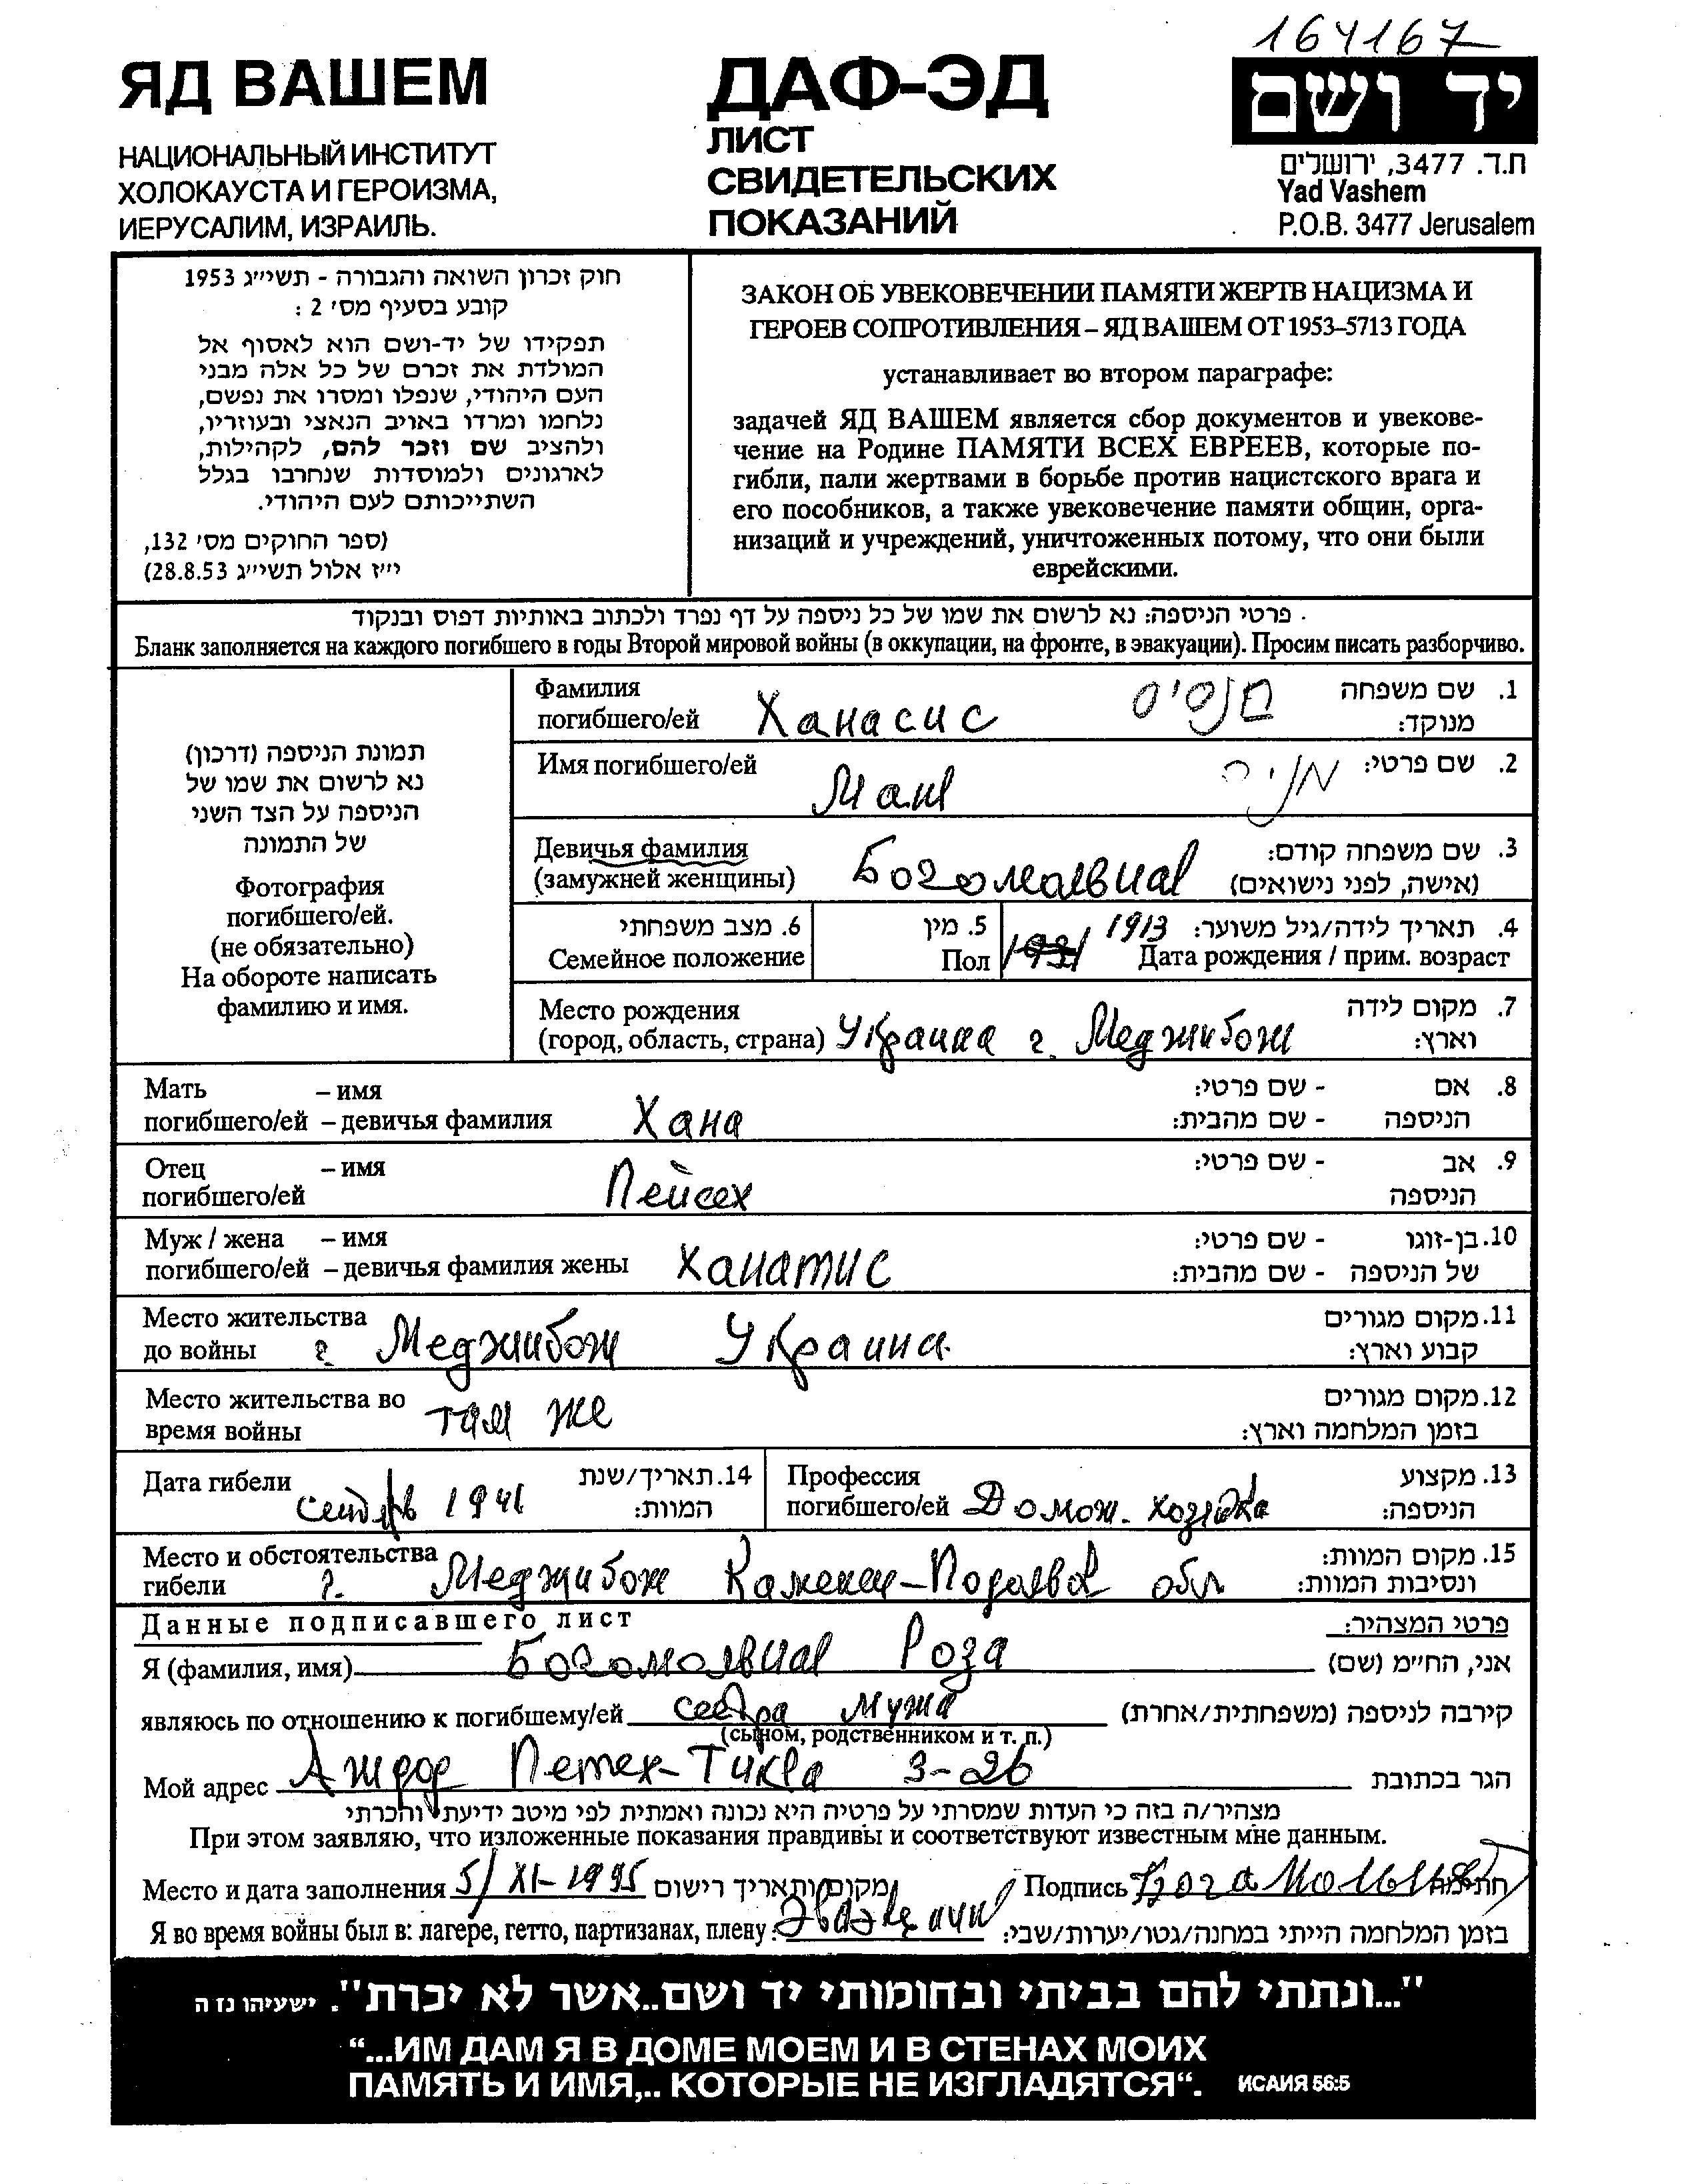 164167
ЯД ВАШЕМ
НАЦИОНАЛЬНЫЙ ИНСТИТУТ
ХОЛОКАУСТА И ГЕРОИЗМА,
ИЕРУСАЛИМ, ИЗРАИЛЬ.
ДАФ-ЭД
ЛИСТ
СВИДЕТЕЛЬСКИХ
ПОКАЗАНИЙ
יד ושם
ת.ד. 3477, ירושלים
Yad Vashem
P.O.B. 3477 Jerusalem
חוק זכרון השואה והגבורה - תשי״ג 1953
קובע בסעיף מס׳ 2 :
תפקידו של יד-ושם הוא לאסוף אל
המולדת את זכרם של כל אלה מבני
העם היהודי, שנפלו ומסרו את נפשם,
נלחמו ומרדו באויב הנאצי ובעוזריו,
ולהציב שם וזכר להם, לקהילות,
לארגונים ולמוסדות שנחרבו בגלל
השתייכותם לעם היהודי.
(ספר החוקים מס׳ 132,
י״ז אלול תשי״ג 28.8.53)
ЗАКОН ОБ УВЕКОВЕЧЕНИИ ПАМЯТИ ЖЕРТВ НАЦИЗМА И
ГЕРОЕВ СОПРОТИВЛЕНИЯ – ЯД ВАШЕМ ОТ 1953–5713 ГОДА
устанавливает во втором параграфе:
задачей ЯД ВАШЕМ является сбор документов и увекове-
чение на Родине ПАМЯТИ ВСЕХ ЕВРЕЕВ, которые по-
гибли, пали жертвами в борьбе против нацистского врага и
его пособников, а также увековечение памяти общин, орга-
низаций и учреждений, уничтоженных потому, что они были
еврейскими.
פרטי הניספה: נא לרשום את שמו של כל ניספה על דף נפרד ולכתוב באותיות דפוס ובנקוד .
Бланк заполняется на каждого погибшего в годы Второй мировой войны (в оккупации, на фронте, в эвакуации). Просим писать разборчиво.
תמונת הניספה (דרכון)
נא לרשום את שמו של
הניספה על הצד השני
של התמונה
Фотография
погибшего/ей.
(не обязательно)
На обороте написать
фамилию и имя.
Фамилия
погибшего/ей Ханасис חנסיס
1. שם משפחה
מנוקד:
Имя погибшего/ей Маня מניה 2. שם פרטי:
Девичья фамилия
(замужней женщины) Богомольная
3. שם משפחה קודם:
(אישה, לפני נישואים)
6. מצב משפחתי
Семейное положение
5. מין
Пол
1931 1913
4. תאריך לידה/גיל משוער:
Дата рождения / прим. возраст
Место рождения
(город, область, страна) Украина г. Меджибож
7. מקום לידה
וארץ:
Мать – имя
погибшего/ей – девичья фамилия Хана
8. אם - שם פרטי:
הניספה - שם מהבית:
Отец – имя
погибшего/ей Пейсех
9. אב - שם פרטי:
הניספה
Муж / жена – имя
погибшего/ей – девичья фамилия жены Ханатис
10. בן-זוגו - שם פרטי:
של הניספה - שם מהבית:
Место жительства
до войны г. Меджибож Украина.
11. מקום מגורים
קבוע וארץ:
Место жительства во
время войны там же
12. מקום מגורים
בזמן המלחמה וארץ:
Дата гибели сентябрь 1941
14. תאריך/שנת
המוות:
Профессия
погибшего/ей Домох. хозяйка
13. מקצוע
הניספה:
Место и обстоятельства
гибели г. Меджибож Каменец-Подольск обл
15. מקום המוות:
ונסיבות המוות:
Данные подписавшего лист
פרטי המצהיר:
Я (фамилия, имя) Богомольная Роза אני, הח״מ (שם)
являюсь по отношению к погибшему/ей сестра мужа קירבה לניספה (משפחתית/אחרת)
(сыном, родственником и т. п.)
Мой адрес Аждод Петех-Тиква 3-26 הגר בכתובת
מצהיר/ה בזה כי העדות שמסרתי על פרטיה היא נכונה ואמתית לפי מיטב ידיעתי והכרתי
При этом заявляю, что изложенные показания правдивы и соответствуют известным мне данным.
Место и дата заполнения 5/XI-1995 מקום ותאריך רישום Подпись Богамольная חתימה
Я во время войны был в: лагере, гетто, партизанах, плену: Эвакуации בזמן המלחמה הייתי במחנה/גטו/יערות/שבי:
"...ונתתי להם בביתי ובחומותי יד ושם..אשר לא יכרת". ישעיהו נו ה
“...ИМ ДАМ Я В ДОМЕ МОЕМ И В СТЕНАХ МОИХ
ПАМЯТЬ И ИМЯ,.. КОТОРЫЕ НЕ ИЗГЛАДЯТСЯ“. ИСАИЯ 56:5